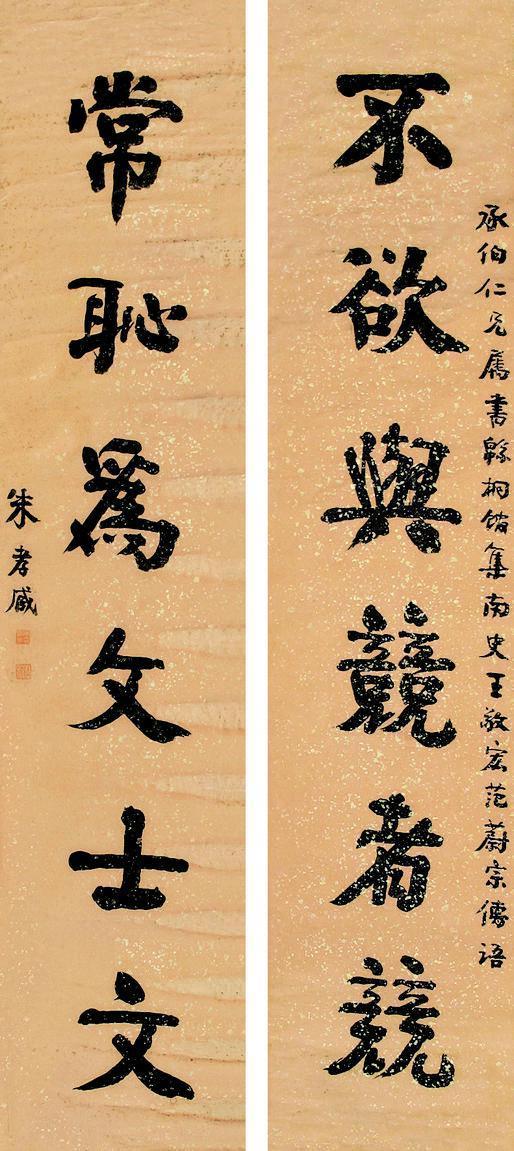 承伯仁兄屬書緜桐館集南史王敬宏范蔚宗傳語
不欲與競者競
常恥為文士文
朱孝臧